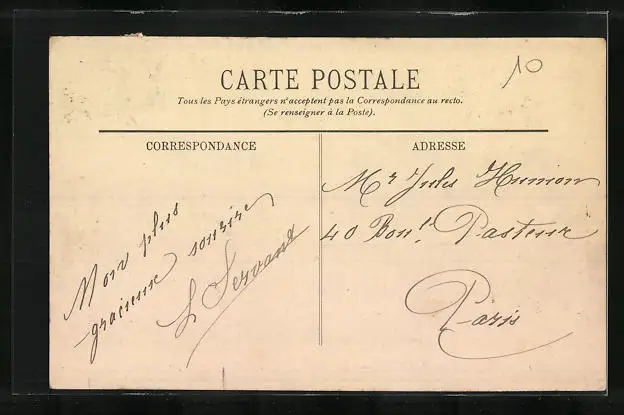 10
CARTE POSTALE
Tous les Pays étrangers n'acceptent pas la Correspondance au recto.
(Se renseigner à la Poste).
CORRESPONDANCE
ADRESSE
Mon plus
gracieux sourire
L Servant
Mr Jules
40 Boul. Pasteur
Paris